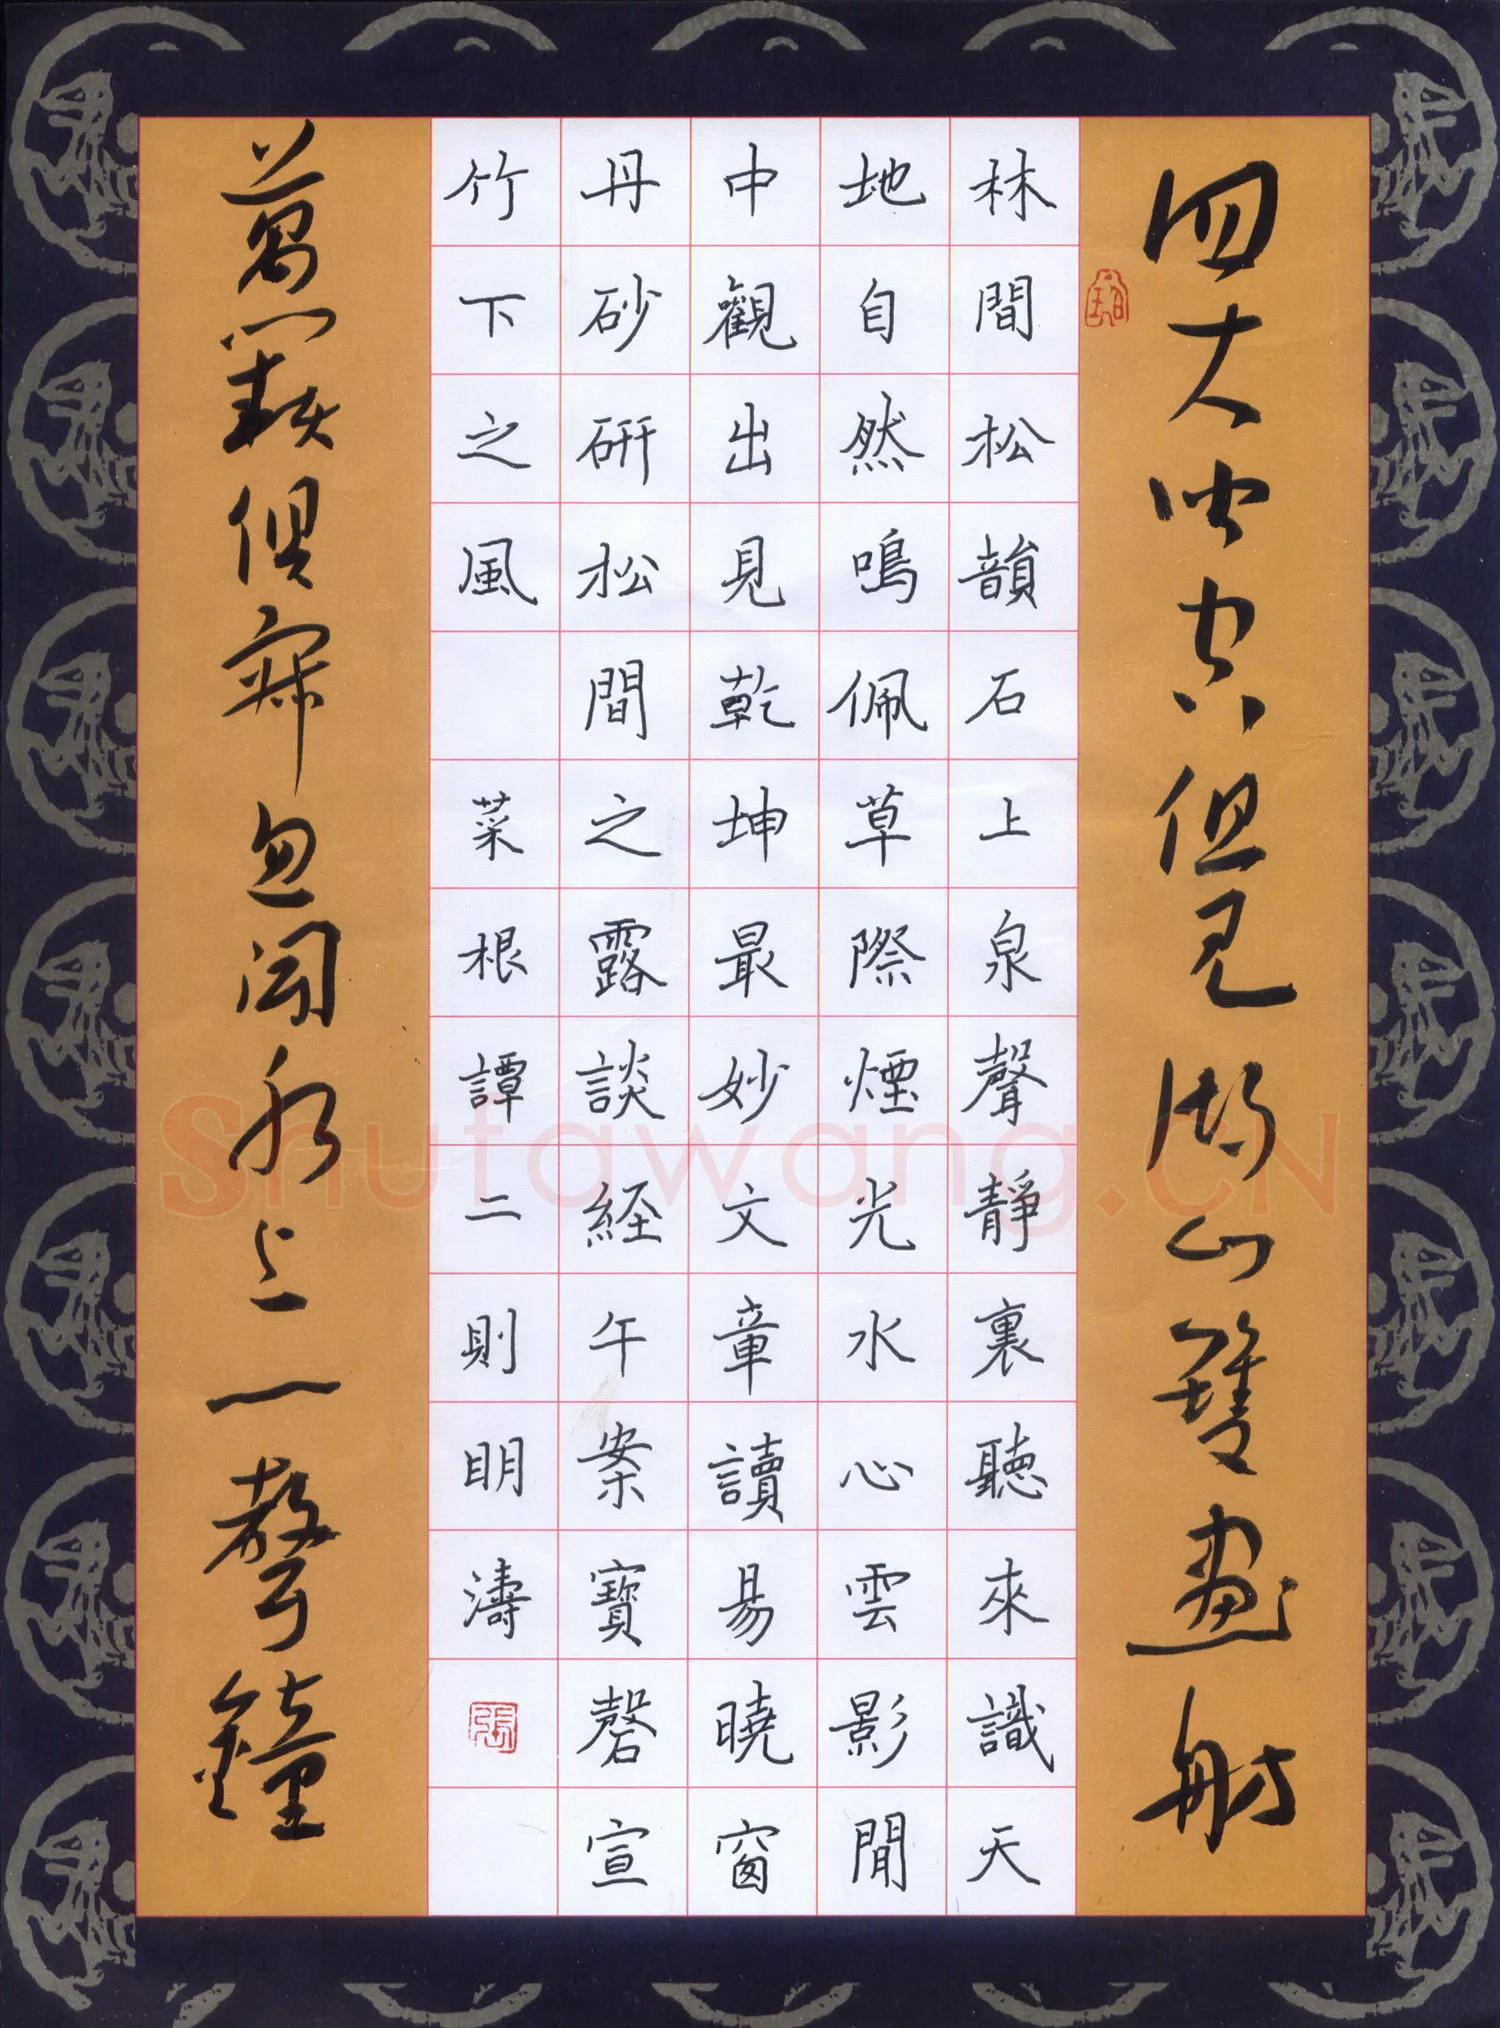 四大皆空但見湖山雙畫舫
林間松韻石上泉聲靜裏聽來識天
地自然鳴佩草際煙光水心雲影閒
中觀出見乾坤最妙文章讀易曉窗
丹砂研松間之露談經午案寶磬宣
竹下之風 菜根譚二則明濤
萬籟俱寂忽聞水上一聲鐘
Shufawang.CN